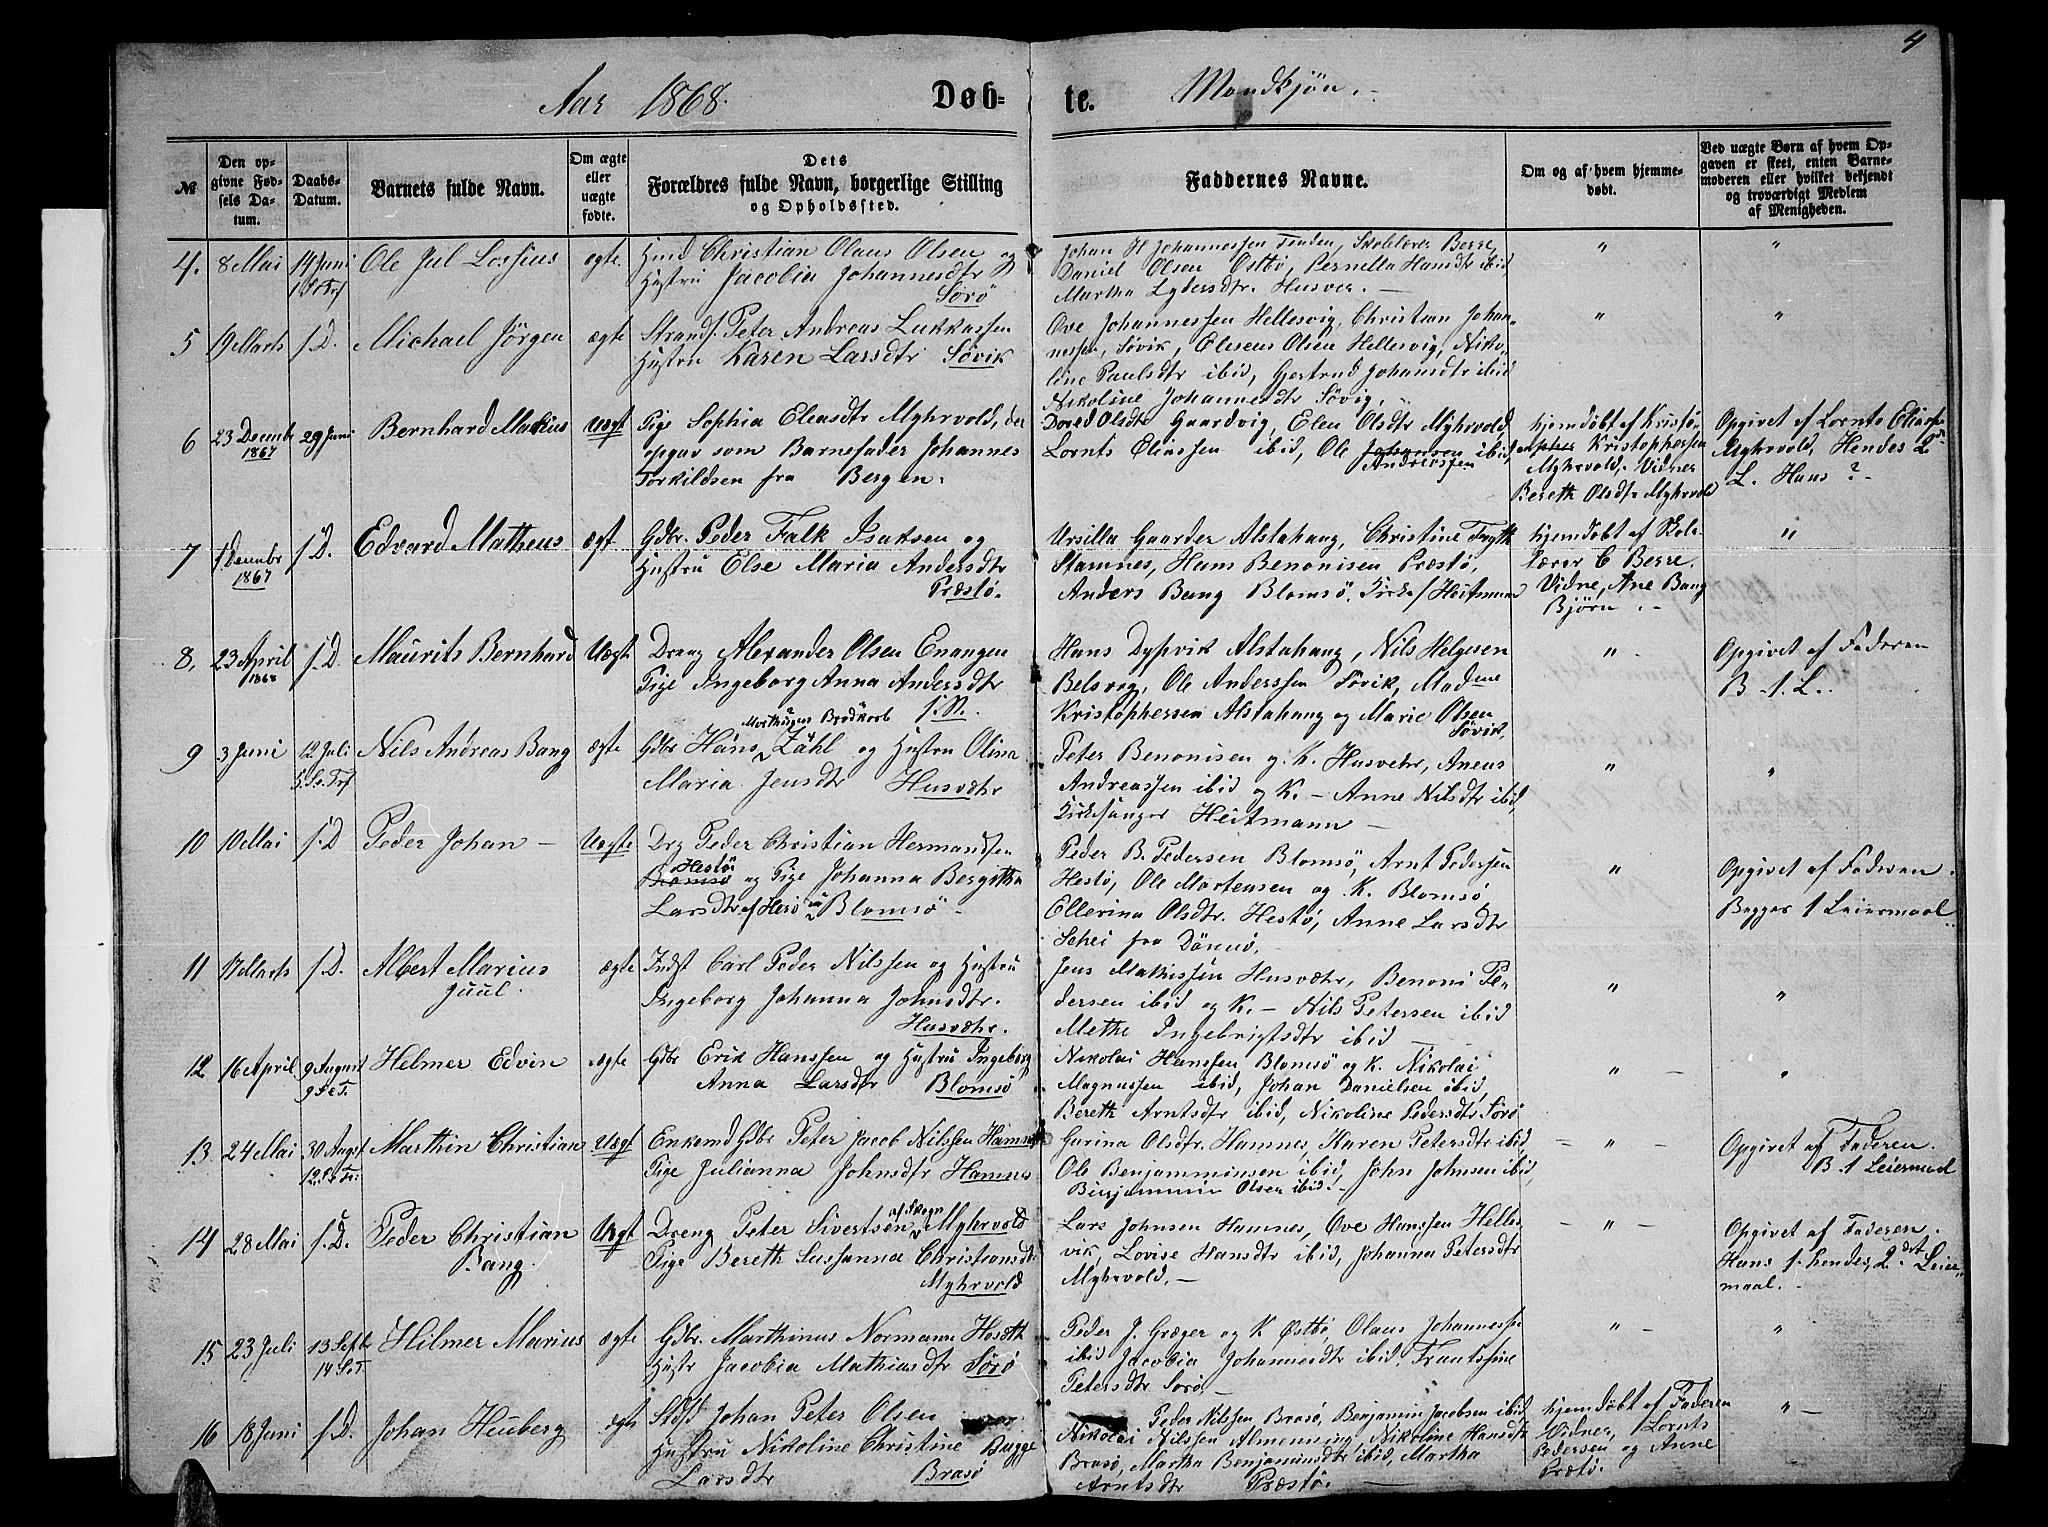 4
Aar 1868.
Døb-
te.
Mandkjøn.
№
Den op-
givne Fød-
sels Da-
tum.
Daabs-
Datum.
Barnets fulde Navn.
Om ægte
eller
uægte
fødte.
Dets
Forældres fulde Navn, borgerlige Stilling
og Opholdssted.
Faddernes Navne.
Om og af hvem hjemme-
døbt.
Ved uægte Børn af hvem Op-
gaven er skeet, enten Barne-
moderen eller hvilket bekjendt
og troværdigt Medlem
af Menigheden.
4. 8 Mai 14 Juni Ole Jul Lossius ægte Christian Olaus Olsen og
Hustru Jacobia Johannesdtr
Sørø
Johan H Johannessen Skolelærer Berre
Daniel Olsen Østbø, Pernella Hansdtr ibid
Martha Lydersdtr. Husver. –
" "
5 19 Marts s. D. Michael Jörgen ægte Strands. Peter Andreas Lukkassen
Hustru Karen Larsdtr Søvik
Ove Johannessen Hellesvig, Christian Johan-
nessen, Søvik, Eliseus Olsen Hellesvig, Niko-
line Paulsdtr ibid, Gjertrud Johansdtr ibid
Nikoline Johannesdtr Søvig.
" "
6 23 Decembr 1867 29 Juni Bernhard Matius Uægt Pige Sophia Eliasdtr Myhrvold, der
opgav som Barnefader Johannes
Torkildsen fra Bergen.
Dored Olsdtr Gaardvig, Elen Olsdtr Myhrvold
Lornts Eliassen ibid, Ole Johansen ibid,
Andreassen
hjemdøbt af Kristo-
Kristophersen
Myhrvold. Vidner
Bereth Olsdtr Myhrvold
Opgivet af Lornts
Myhrvold, Hendes 2det
L. Hans ?
7 1 Decembr 1867 s. D. Edvard Matheus ægt Gdbr. Peder Falk Isaksen og
Hustru Else Maria Andersdtr
Præstø.
Ursilla Gaarder Alstahaug, Christine
Stamnes, Hans Benonisen Præstø,
Anders Bang Blomsö. Kirkes Heitmann
hjemdøbt af Skole-
lærer C Berre.
Vidne, Ane Bang
Bjørn. –
"
8, 23 April 1868 s. D. Maurits Bernhard Uægt Dreng Alexander Olsen Enangen
Pige Ingeborg Anna Andersdtr
s. St.
Hans Dypvik Alstahaug, Nils Helgesen
Belsvog, Ole Anderssen Søvik, Madme
Kristophersen Alstahaug og Marie Olsen
Søvik,
"
Opgivet af Faderen
B. 1. L.
9 3 Juni 12 Juli 5. S. e. Trf Nils Andreas Bang ægte Gdbr Hans Zähl og Hustru Olina
Mathisen Brodkorb
Maria Jensdtr Husvæhr
Peter Benonisen og K. Husvehr, Aneus
Andreassen ibid og K. – Anne Nilsdtr ibid,
Kirkesanger Heitmann –
" "
10 10 Mai s. D Peder Johan – Uægte Drg Peder Christian Hermandsen
Hestö
Blomsö og Pige Johanna Bergitha
Larsdtr af Herö nu Blomsö –
Peder B. Pedersen Blomsö, Arnt Pedersen
Hestö, Ole Mortensen og K. Blomsö
Ellerina Olsdtr. Hestö, Anne Larsdtr
Schei fra Dönnö. –
"
Opgivet af Faderen.
Begges 1 Leiermaal
11 17 Marts s. D. Albert Marius
Juul.
ægte Indst Carl Peder Nilssen og Hustru
Ingeborg Johanna Johnsdtr.
Husvæhr.
Jens Mathissen Husvæhr, Benoni Pe-
dersen ibid og K. – Nils Petersen ibid
Methe Ingebrigtsdtr ibid –
" "
12 16 April 9 August 9 S e T. Helmer Edvin ægte Gdbr Erik Hanssen og Hustru Ingeborg
Anna Larsdtr Blomsö
Nikolai Hanssen Blomsö og K. Nikolai
Magnussen ibid, Johan Danielsen ibid,
Bereth Arntsdtr ibid, Nikoline Pedersdtr Sørø
" – "
13. 24 Mai 30 August Marthin Christian Uægt Enkemd Gdbr Peter Jacob Nilssen Hamnes
Pige Julianna Johnsdtr Hamnes
Gurina Olsdtr. Hamnes, Karen Petersdtr ibid,
Ole Benjaminsen ibid, John Johnsen ibid,
Benjammin Olsen ibid. –
– " –
Opgivet af Faderen.
B. 1 Leiermaal
14 28 Mai s. D. Peder Christian
Bang.
Uægt Dreng Peter Sivertsen Myhrvold
af Skogn
Pige Bereth Sussanna Christiansdtr
Myhrvold
Lars Johnsen Hamnes, Ove Hanssen Helles-
vik, Lovise Hansdtr ibid, Johanna Petersdtr
Myhrvold. –
– " –
Opgivet af Faderen.
Hans 1. hendes 2det Leier-
maal. –
15 23 Juli 13 Septbr 14 S e T Hilmer Marius ægte Gdbr. Marthinus Normann
Hustr Jacobia Mathiasdtr Sørø
Peder J. Græger og K Østbø, Olaus Johannessen
ibid Jacobia Johannesdtr ibid,
Petersdtr Sørø –
" – "
16 18 Juni s. D. Johan Heuberg ægte Johan Peter Olsen
Hustru Nikoline Christine Bugge
Larsdtr Brasö
Peder Nilssen Brasö, Benjamin Jacobsen ibid
Nikolai Nilssen Almenning, Nikoline Hansdtr
Brasö, Martha Benjaminsdtr ibid, Martha
Arntsdtr Præstö. –
hjemdøbt af Faderen
Vidner, Lornts
Pedersen og Anne
Præstö.
" –